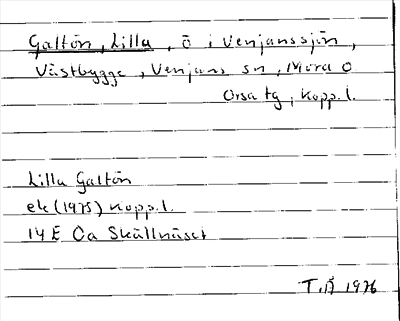 Galtön, Lilla, ö i Venjanssjön,
Västbygge, Venjans sn, Mora o
Orsa tg, Kopp. l.
Lilla Galtön
ek (1975) Kopp. l.
14 E 0a Skällnäset
T.Å 1976